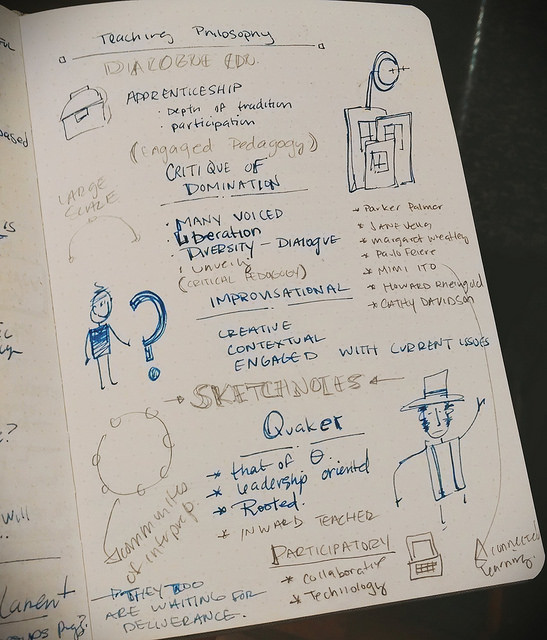 Teaching Philosophy
DIALOGUE EDU.
APPRENTICESHIP
· Depth of tradition
· participation
(Engaged Pedagogy)
CRITIQUE OF
DOMINATION
LARGE
· MANY VOICED
· Liberation
· DIVERSITY - DIALOGUE
· Unveil
(CRITICAL PEDAGOGY)
* Parker Palmer
* JANE Vella
* margaret Wheatley
* Paulo Feiere
* MIMI ITO
* HAWARD Rheingold
* CATHY DAVIDSON
IMPROVISATIONAL
CREATIVE
CONTEXTUAL
ENGAGED WITH CURRENT ISSUES
SKETCHNOTES
Quaker
* that of
* leadership oriented
* Rooted.
* INWARD TEACHER
communities
of interp.
PARTICIPATORY
* collaborative
* Technology
connected
learning.
THEY TOO
ARE WAITING FOR
DELIVERANCE.
ased
IS
?
will
lament